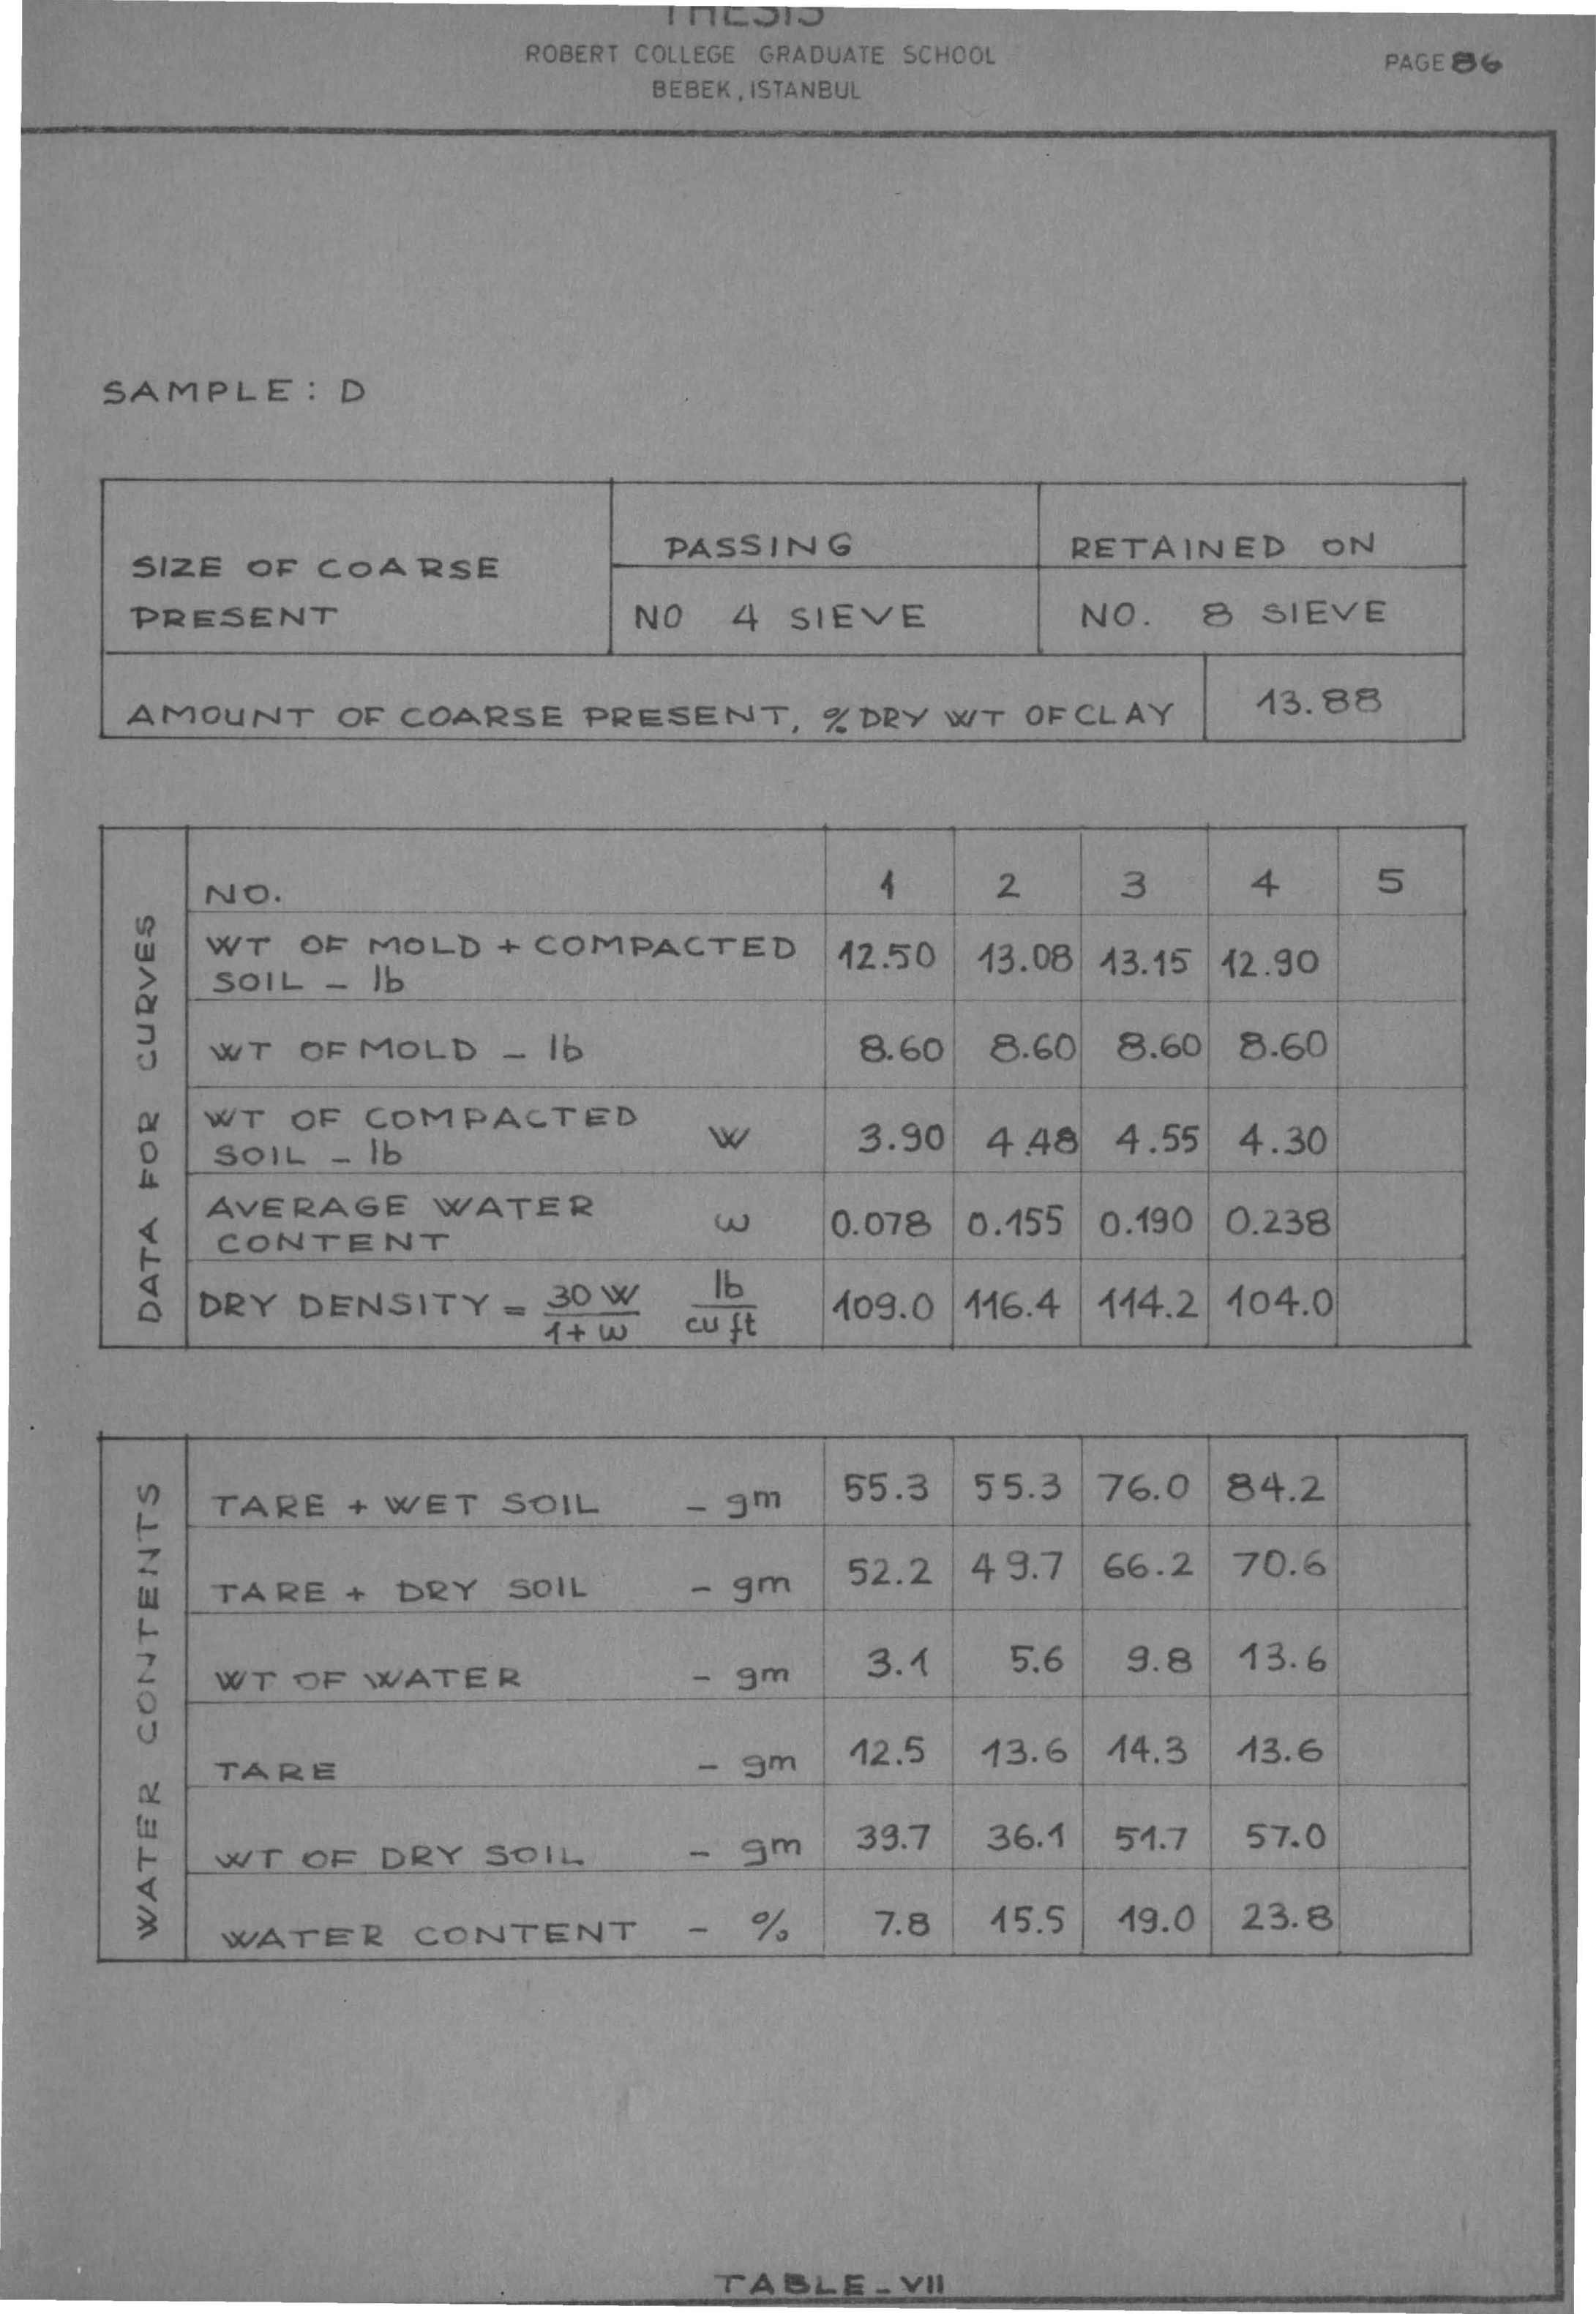 THESIS
ROBERT COLLEGE GRADUATE SCHOOL
BEBEK, ISTANBUL
PAGE 86
SAMPLE: D
SIZE OF COARSE PRESENT PASSING RETAINED ON
NO 4 SIEVE NO. 8 SIEVE
AMOUNT OF COARSE PRESENT, % DRY WT OF CLAY 13.88
DATA FOR CURVES
NO. 1 2 3 4 5
WT OF MOLD + COMPACTED SOIL - lb 12.50 13.08 13.15 12.90
WT OF MOLD - lb 8.60 8.60 8.60 8.60
WT OF COMPACTED SOIL - lb W 3.90 4.48 4.55 4.30
AVERAGE WATER CONTENT ω 0.078 0.155 0.190 0.238
DRY DENSITY = 30 W / 1 + ω lb / cu ft 109.0 116.4 114.2 104.0
WATER CONTENTS
TARE + WET SOIL - gm 55.3 55.3 76.0 84.2
TARE + DRY SOIL - gm 52.2 49.7 66.2 70.6
WT OF WATER - gm 3.1 5.6 9.8 13.6
TARE - gm 12.5 13.6 14.3 13.6
WT OF DRY SOIL - gm 39.7 36.1 51.7 57.0
WATER CONTENT - % 7.8 15.5 19.0 23.8
TABLE - VII